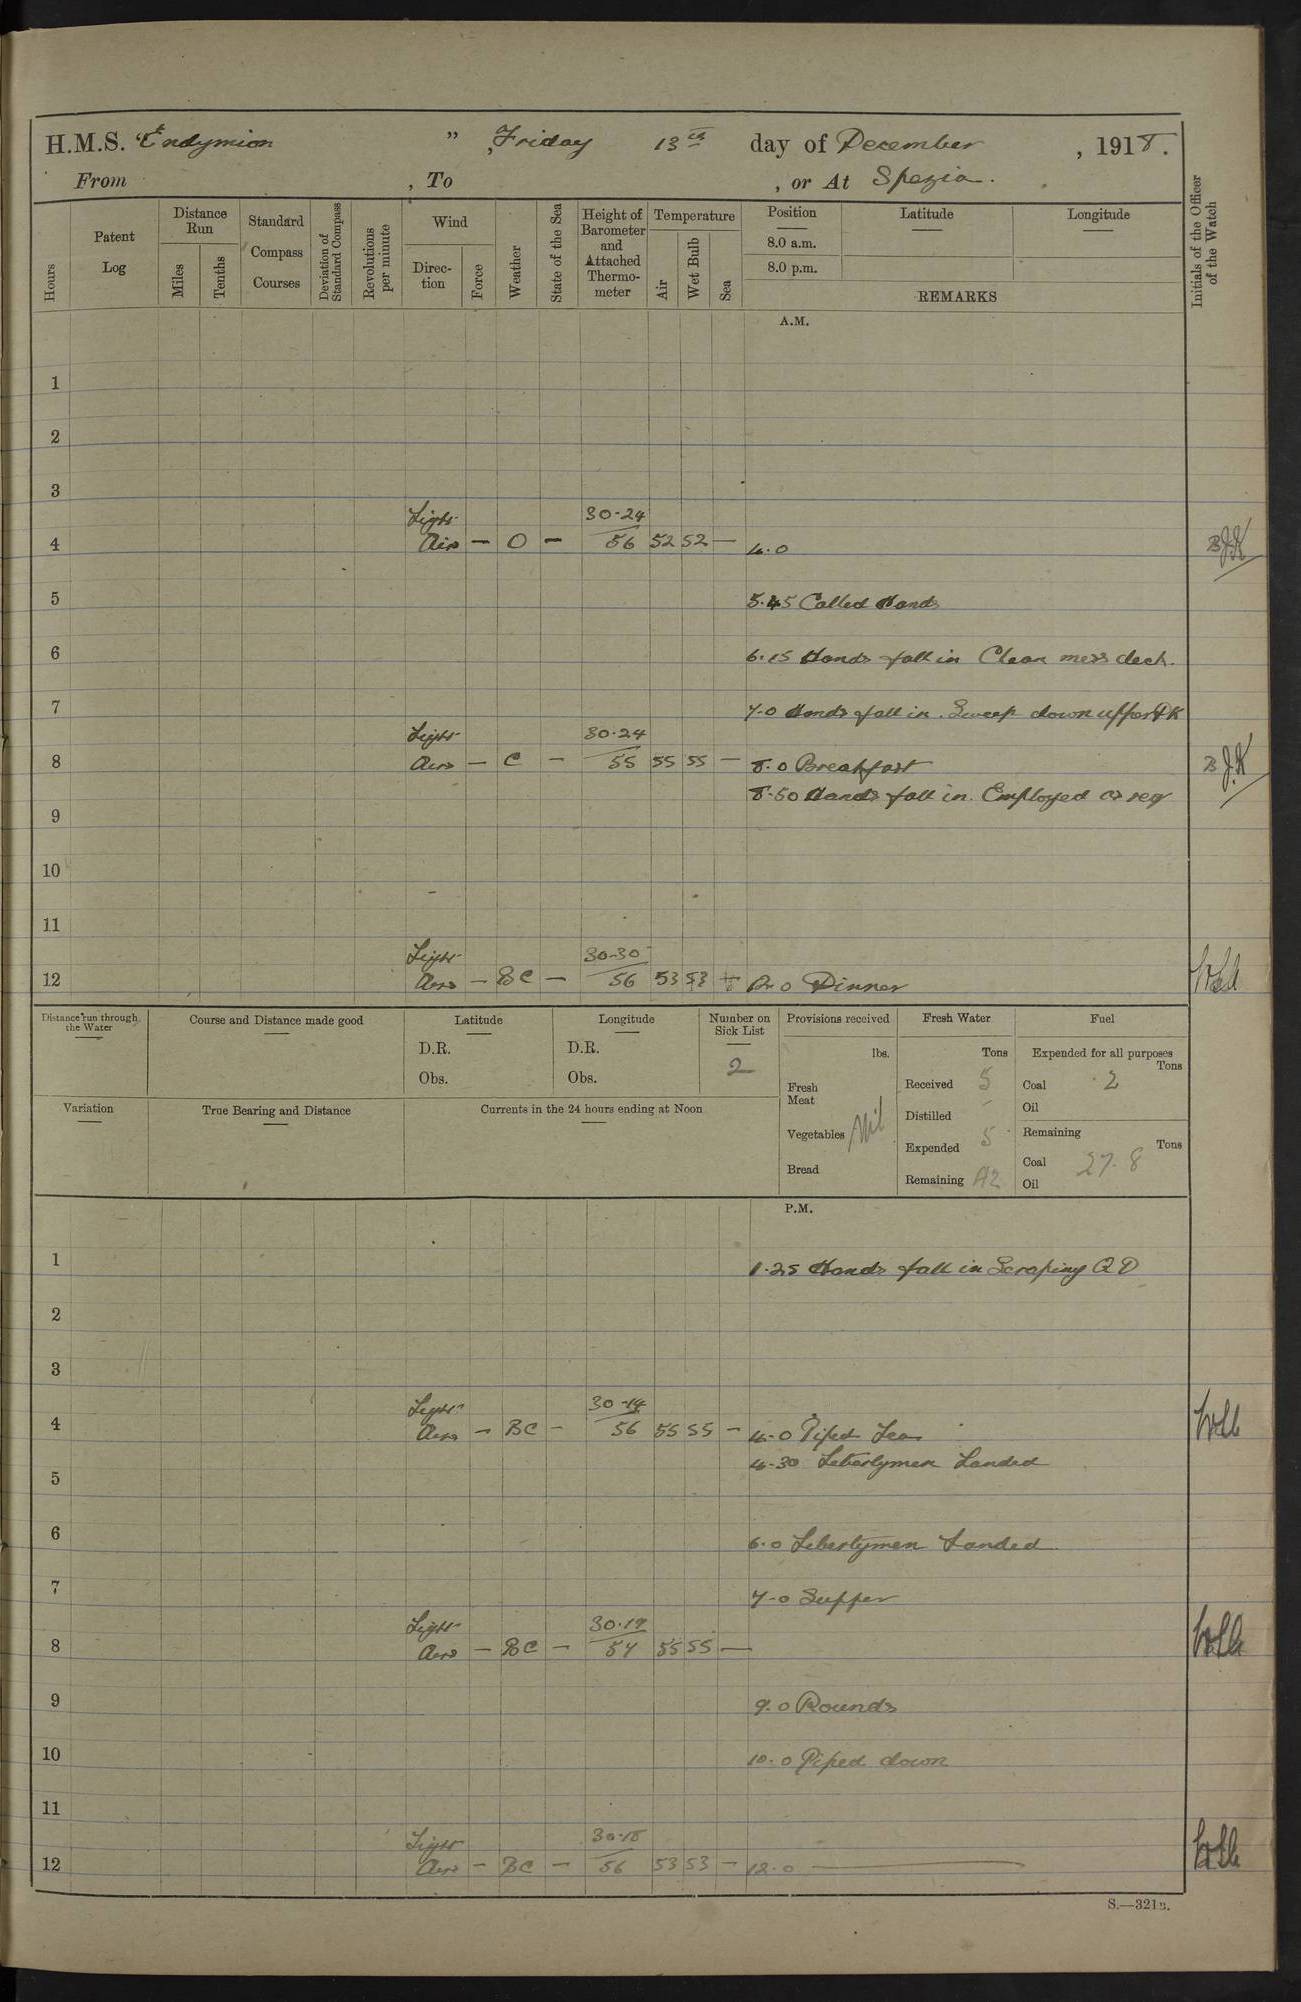 H.M.S. "Endymion", Friday 13th day of December, 1918.
From , To , or At Spezia.
Hours
Patent Log
Distance Run
Miles
Tenths
Standard Compass Courses
Deviation of Standard Compass
Revolutions per minute
Wind
Direction
Force
Weather
State of the Sea
Height of Barometer and Attached Thermometer
Temperature
Air
Wet Bulb
Sea
Position
8.0 a.m.
8.0 p.m.
Latitude
Longitude
REMARKS
Initials of the Officer of the Watch
A.M.
1
2
3
Light 30.24
4 Airs — O — 56 52 52 — 4.0 BJK
5 5.45 Called Hands
6 6.15 Hands fall in Clean mess deck.
7 7.0 Hands fall in. Sweep down upper DK
Light 30.24
8 Airs — C — 55 55 55 — 8.0 Breakfast BJK
8.50 Hands fall in. Employed as req
9
10
11
Light 30.30
12 Airs — BC — 56 53 53 12.0 Dinner
Distance run through the Water
Course and Distance made good
Latitude
D.R.
Obs.
Longitude
D.R.
Obs.
Number on Sick List
2
Provisions received
lbs.
Fresh Meat
Vegetables Nil
Bread
Fresh Water
Tons
Received 5
Distilled -
Expended 5
Remaining 42
Fuel
Expended for all purposes
Tons
Coal 2
Oil
Remaining
Tons
Coal 27.8
Oil
Variation
True Bearing and Distance
Currents in the 24 hours ending at Noon
P.M.
1 1.25 Hands fall in Scraping QD
2
3
Light 30.14
4 Airs — BC — 56 55 55 — 4.0 Piped Tea
4.30 Libertymen Landed
5
6 6.0 Libertymen Landed
7 7.0 Supper
Light 30.19
8 Airs — BC — 57 55 55 —
9 9.0 Rounds
10 10.0 Piped down
11
Light 30.18
12 Airs — BC — 56 53 53 — 12.0 —
S.—321B.